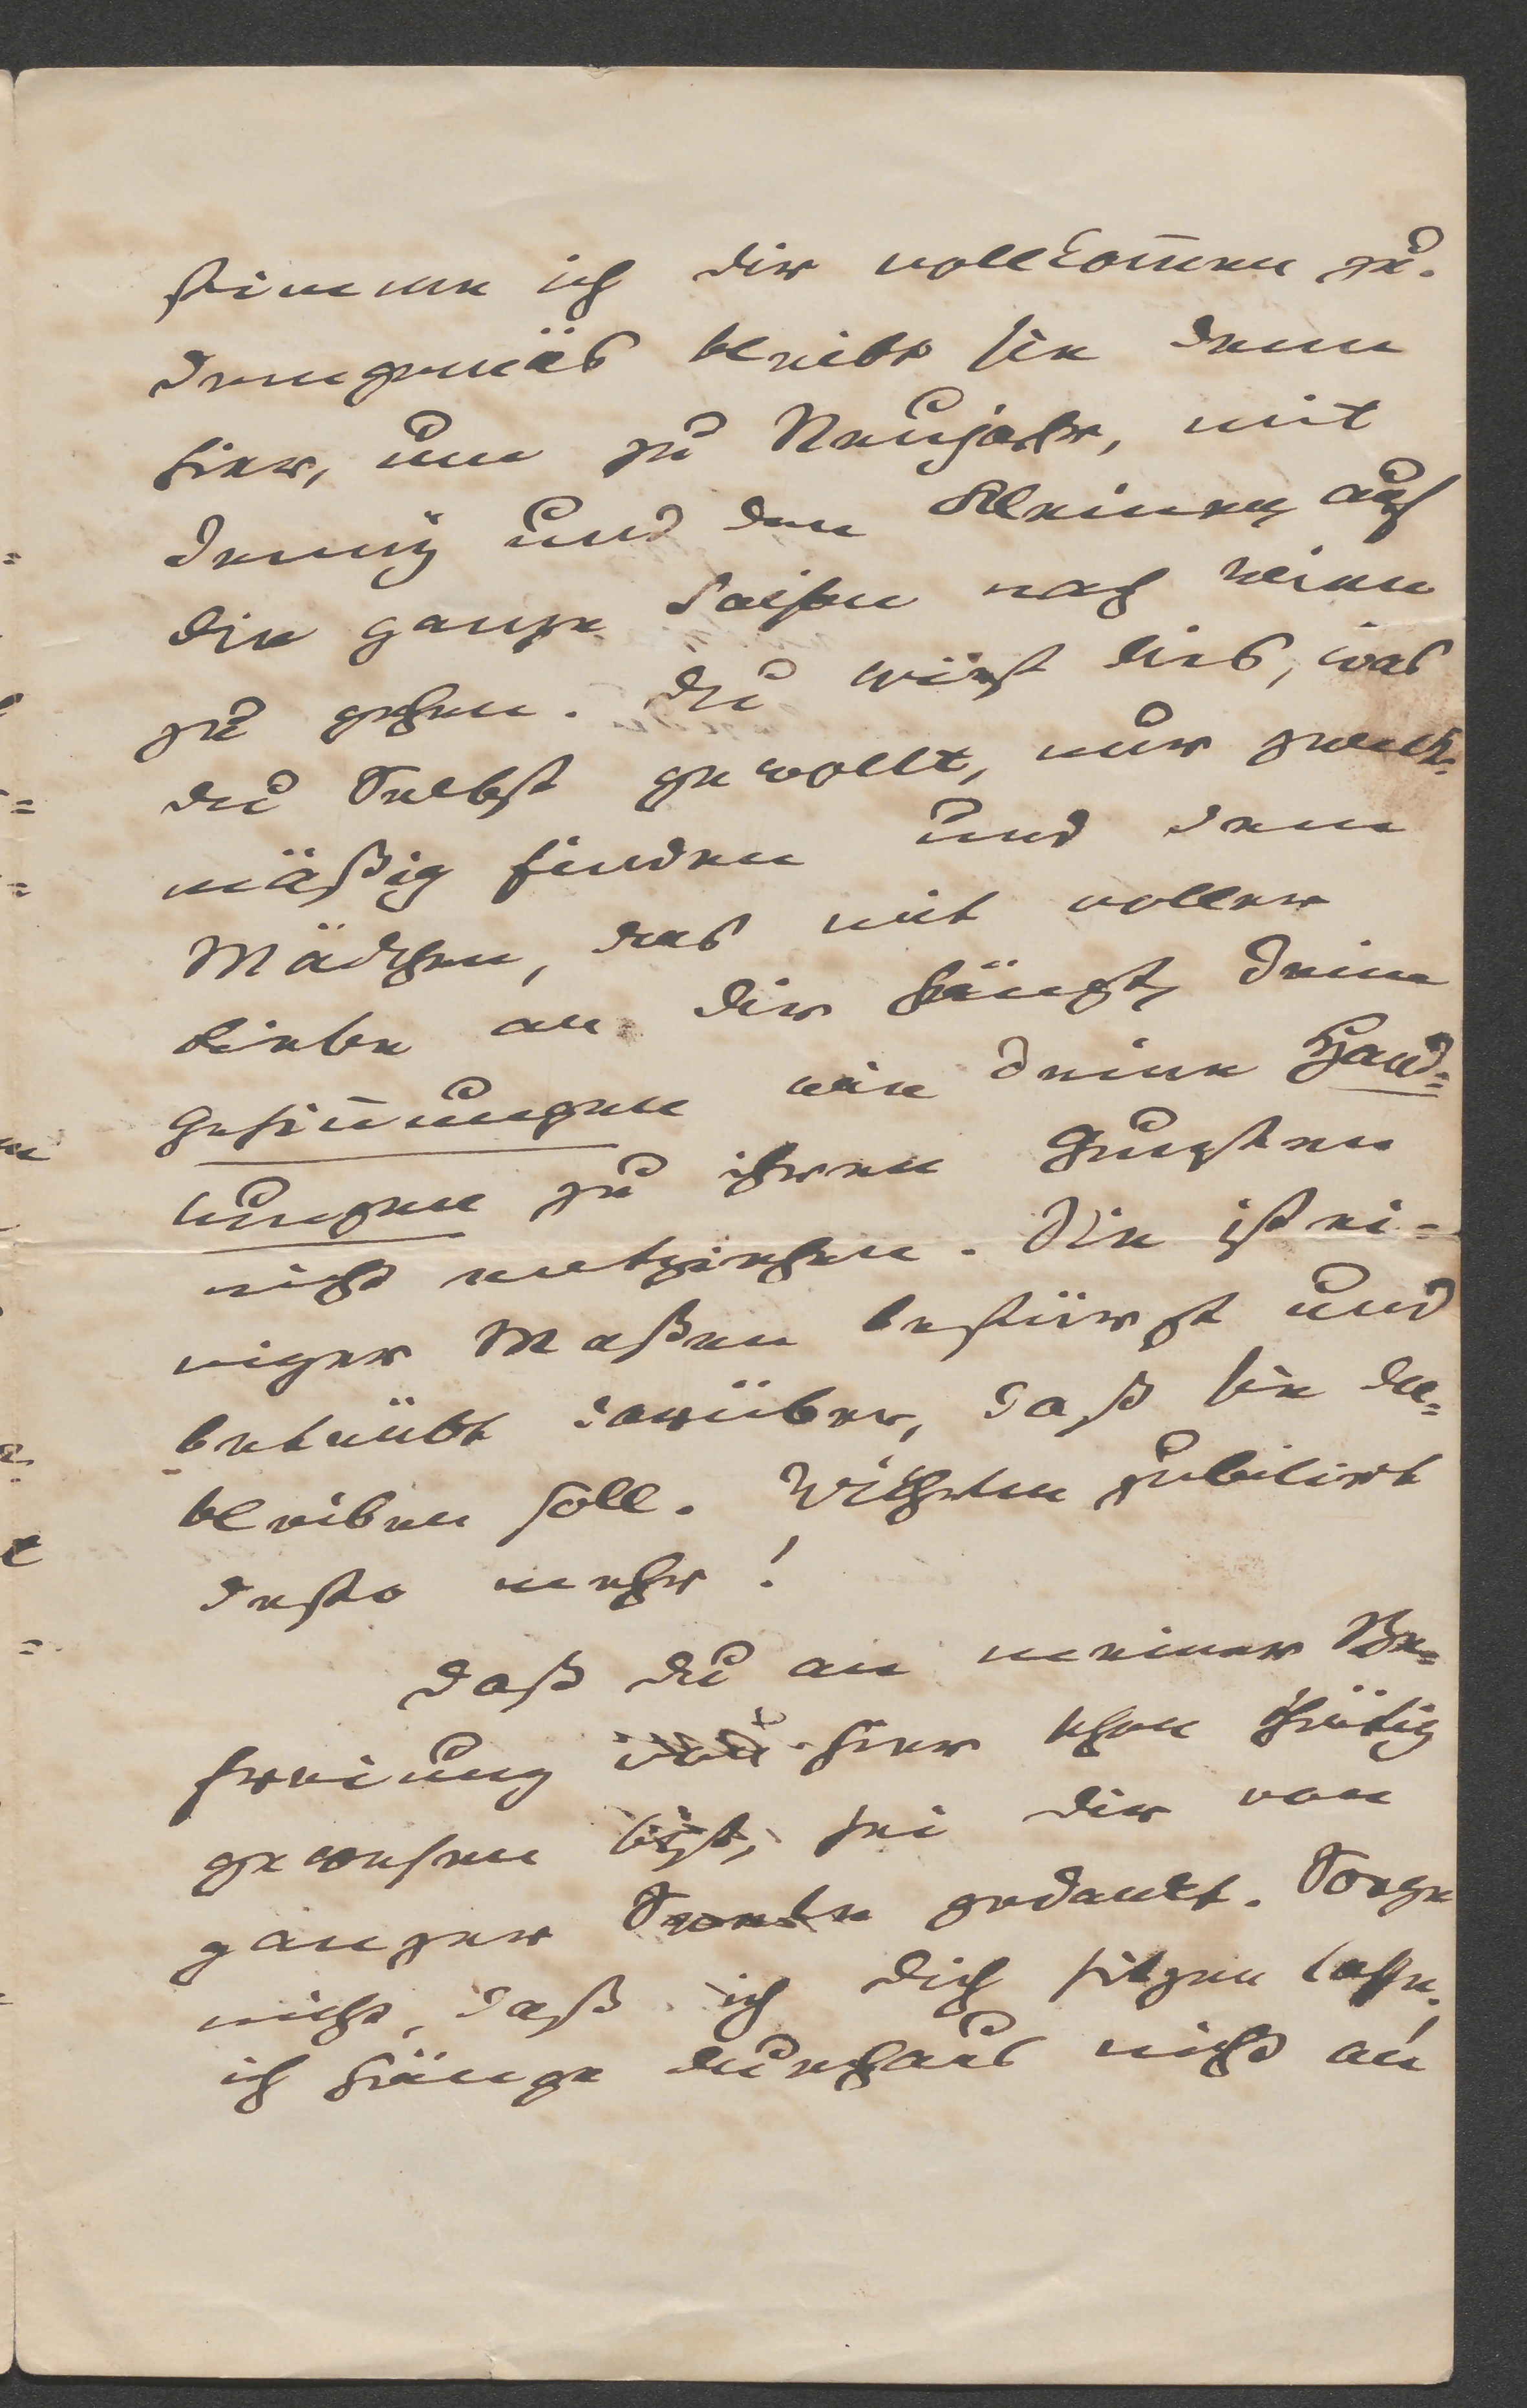 stimme ich dir vollkom̅en zu.
demgemäs bleibt sie denn
hier, um zu Neujahr, mit
Jenny und den Kleinen auf
die ganze Saison nach Wien
zu gehen. Du wirst dies, was
du Selbst gewollt, nur zweck-
mäßig finden und dem
Mädchen, das mit voller
Liebe an dir hängt, deine
Gesin̅ungen wie deine Hand=
lungen zu ihren Gunsten
nicht entziehen. Sie ist ei=
niger Maßen bestürzt und
betrübt darüber, daß sie da=
bleiben soll. Wilhelm jubilirt
desto mehr!
daß du an meiner Be=
freiung hier schon thätig
gewesen bist, sei dir von
ganzer Seele gedankt. Sorge
nicht, daß ich dich sitzen lasse.
ich hänge durchaus nicht an